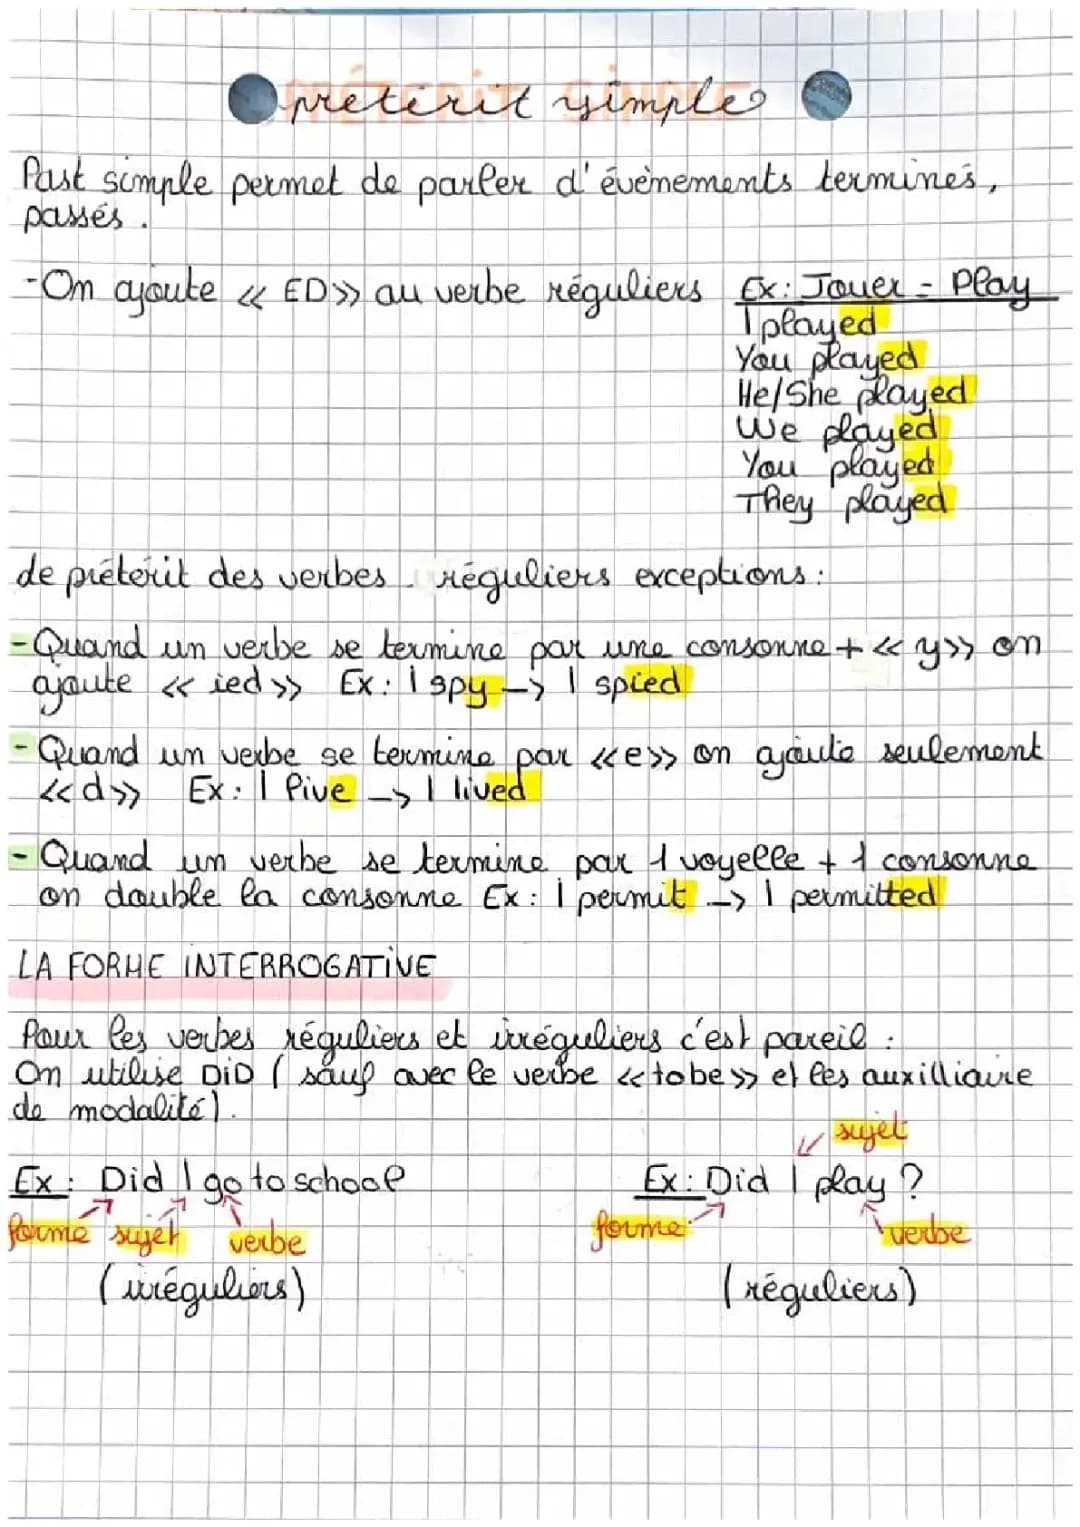 préterit simple
Past simple permet de parler d'évènements terminés,
passés.
-On ajoute « ED» au verbe réguliers Ex: Jouer = Play
I played
You played
He/She played
We played
You played
They played
de préterit des verbes réguliers exceptions:
-Quand un verbe se termine par une consonne + « y» on
ajoute « ied» Ex: I spy -> I spied
- Quand un verbe se termine par «e» on ajoute seulement
«d» Ex: I live -> I lived
- Quand un verbe se termine par 1 voyelle + 1 consonne
on double la consonne Ex: I permit -> I permitted
LA FORME INTERROGATIVE
Pour les verbes réguliers et irréguliers c'est pareil:
On utilise DID (sauf avec le verbe «to be» et les auxilliaire
de modalité).
sujet
Ex: Did I go to school Ex: Did I play?
forme sujet verbe forme verbe
(irréguliers) (réguliers)